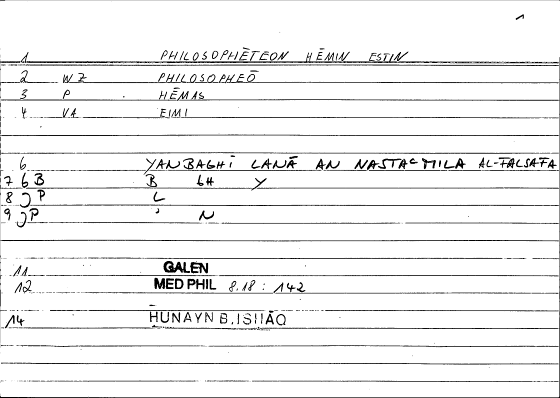 1 PHILOSOPHĒTEON HĒMIN ESTIN
2 WZ PHILOSOPHEŌ
3 P HĒMAS
4 VA EIMI
6 YANBAGHĪ LANĀ AN NASTAᶜMILA AL-FALSAFA
7 6 B B GH Y
8 P L
9 P ' N
11 GALEN
12 MED PHIL 8.18 : 142
14 ḤUNAYN B.ISḤĀQ